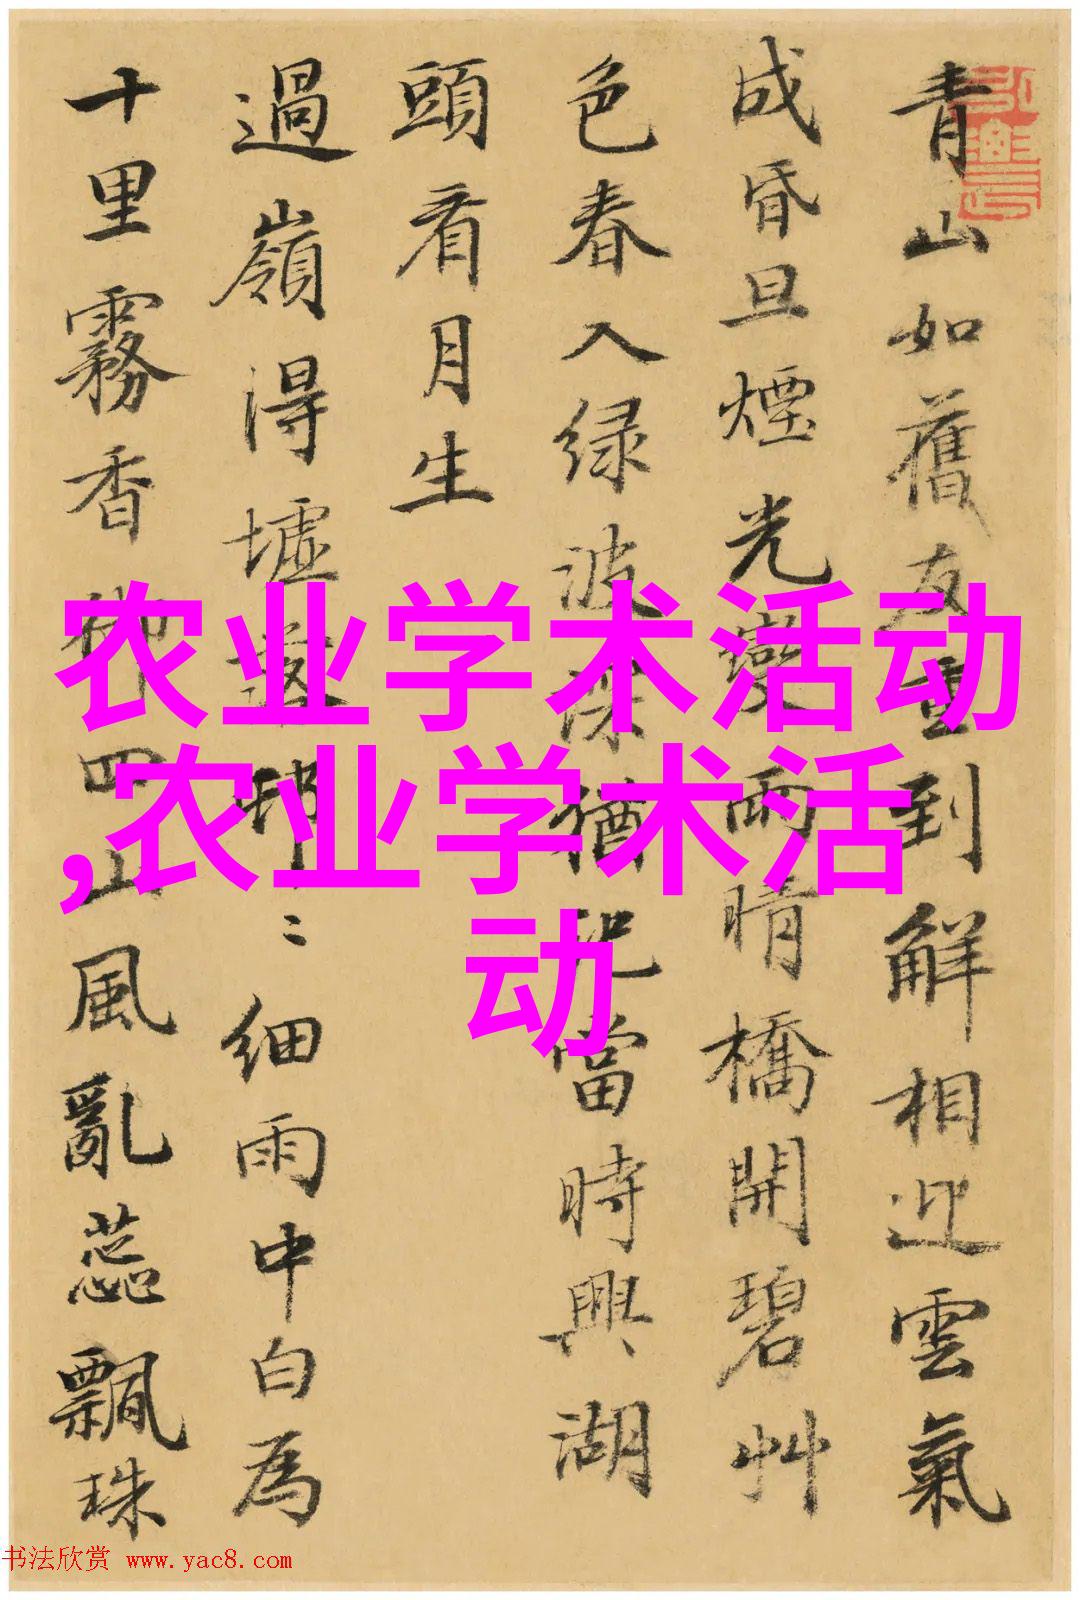 青山如舊友重到解相迎雲氣
成昏旦煙光變雨晴橋開碧艸
色春入绿波深猶記當時興湖
頭看月生
過嶺得墟落邨〻細雨中白為
十里霧香拂四山風亂蕊飄珠
农业学术活动
,农业学术活
动
书法欣赏 www.yac8.com